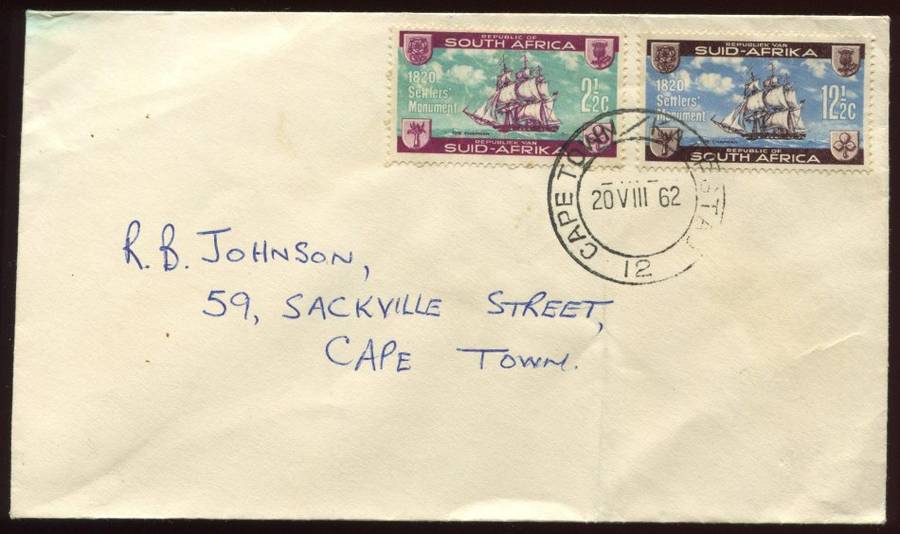 REPUBLIC OF
SOUTH AFRICA
1820
Settlers'
Monument
2½c
REPUBLIEK VAN
SUID-AFRIKA
REPUBLIEK VAN
SUID-AFRIKA
1820
Settlers'
Monument
12½c
REPUBLIC OF
SOUTH AFRICA
CAPE TOWN
20 VIII 62
12
R.B. JOHNSON,
59, SACKVILLE STREET,
CAPE TOWN.